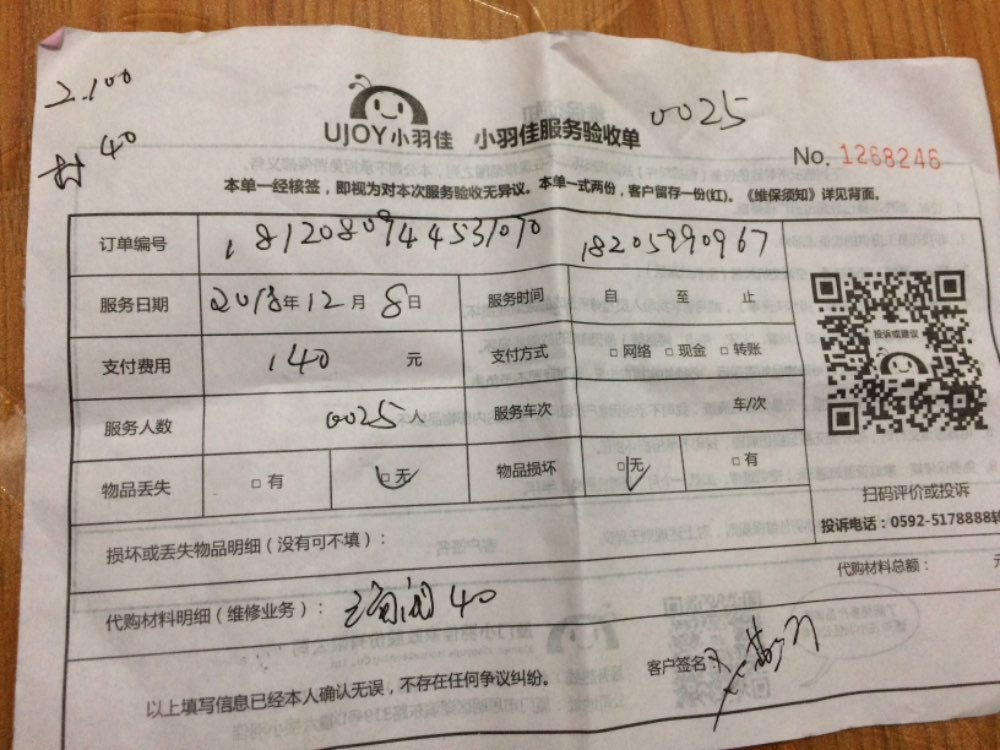 2.100
40
UJOY小羽佳 小羽佳服务验收单 0025
No. 1268246
本单一经核签，即视为对本次服务验收无异议。本单一式两份，客户留存一份(红)。《维保须知》详见背面。
订单编号 1812080944531070 18205990967
服务日期 2018年12月8日 服务时间 自 至 止
支付费用 140 元 支付方式 □网络 □现金 □转账
服务人数 0025人 服务车次 车/次
物品丢失 □有 □无 物品损坏 □无 □有
投诉或建议
扫码评价或投诉
投诉电话：0592-5178888转
损坏或丢失物品明细（没有可不填）：
代购材料总额： 元
代购材料明细（维修业务）： 40
以上填写信息已经本人确认无误，不存在任何争议纠纷。 客户签名